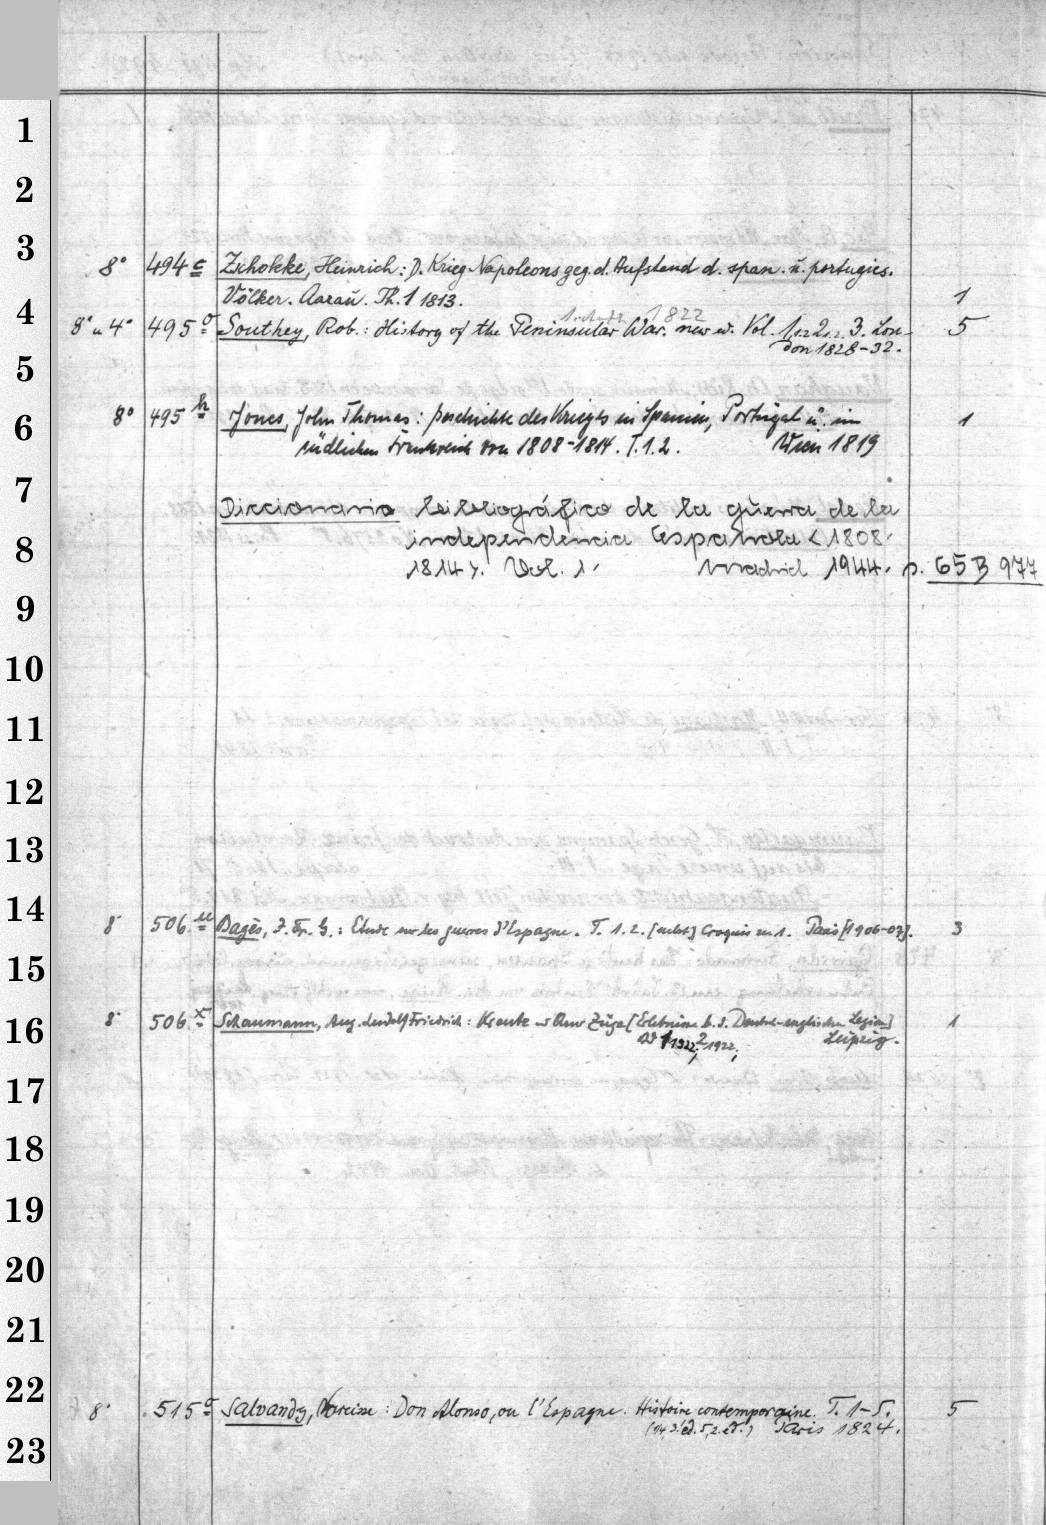 1
2
3
8° 494 c Zschokke, Heinrich: D. Krieg Napoleons geg. d. Aufstand d. span. u. portugies.
Völker. Aarau. Th. 1 1813. 1
4
1822
8° u 4° 495 g Southey, Rob.: History of the Peninsular War. new ed. Vol. 1. 2. 3. Lon- 5
don 1828-32.
5
6
8° 495 h Jones, John Thomas: Geschichte des Krieges in Spanien, Portugal u. im 1
südlichen Frankreich von 1808-1814. T. 1. 2. Wien 1819
7
Diccionario bibliográfico de la guerra de la
8
independencia Española <1808-
1814>. Vol. 1- Madrid 1944- s. 65 B 977
9
10
11
12
13
14
8° 506 u Bagès, F. Fr. G.: Etude sur les guerres d'Espagne. T. 1. 2. [nebst] Croquis zu 1. Paris [1906-07]. 3
15
16
8° 506 x Schaumann, Aug. Ludolf Friedrich: Kreuz- u Querzüge [Erlebnisse b. d. Deutsch-englischen Legion] 1
Bd 1 1922, 2 1922, Leipzig.
17
18
19
20
21
22
8° 515 g Salvandy, Narcisse: Don Alonso, ou l'Espagne. Histoire contemporaine. T. 1-5. 5
(1-4, 3. éd. 5, 2. éd.) Paris 1824.
23